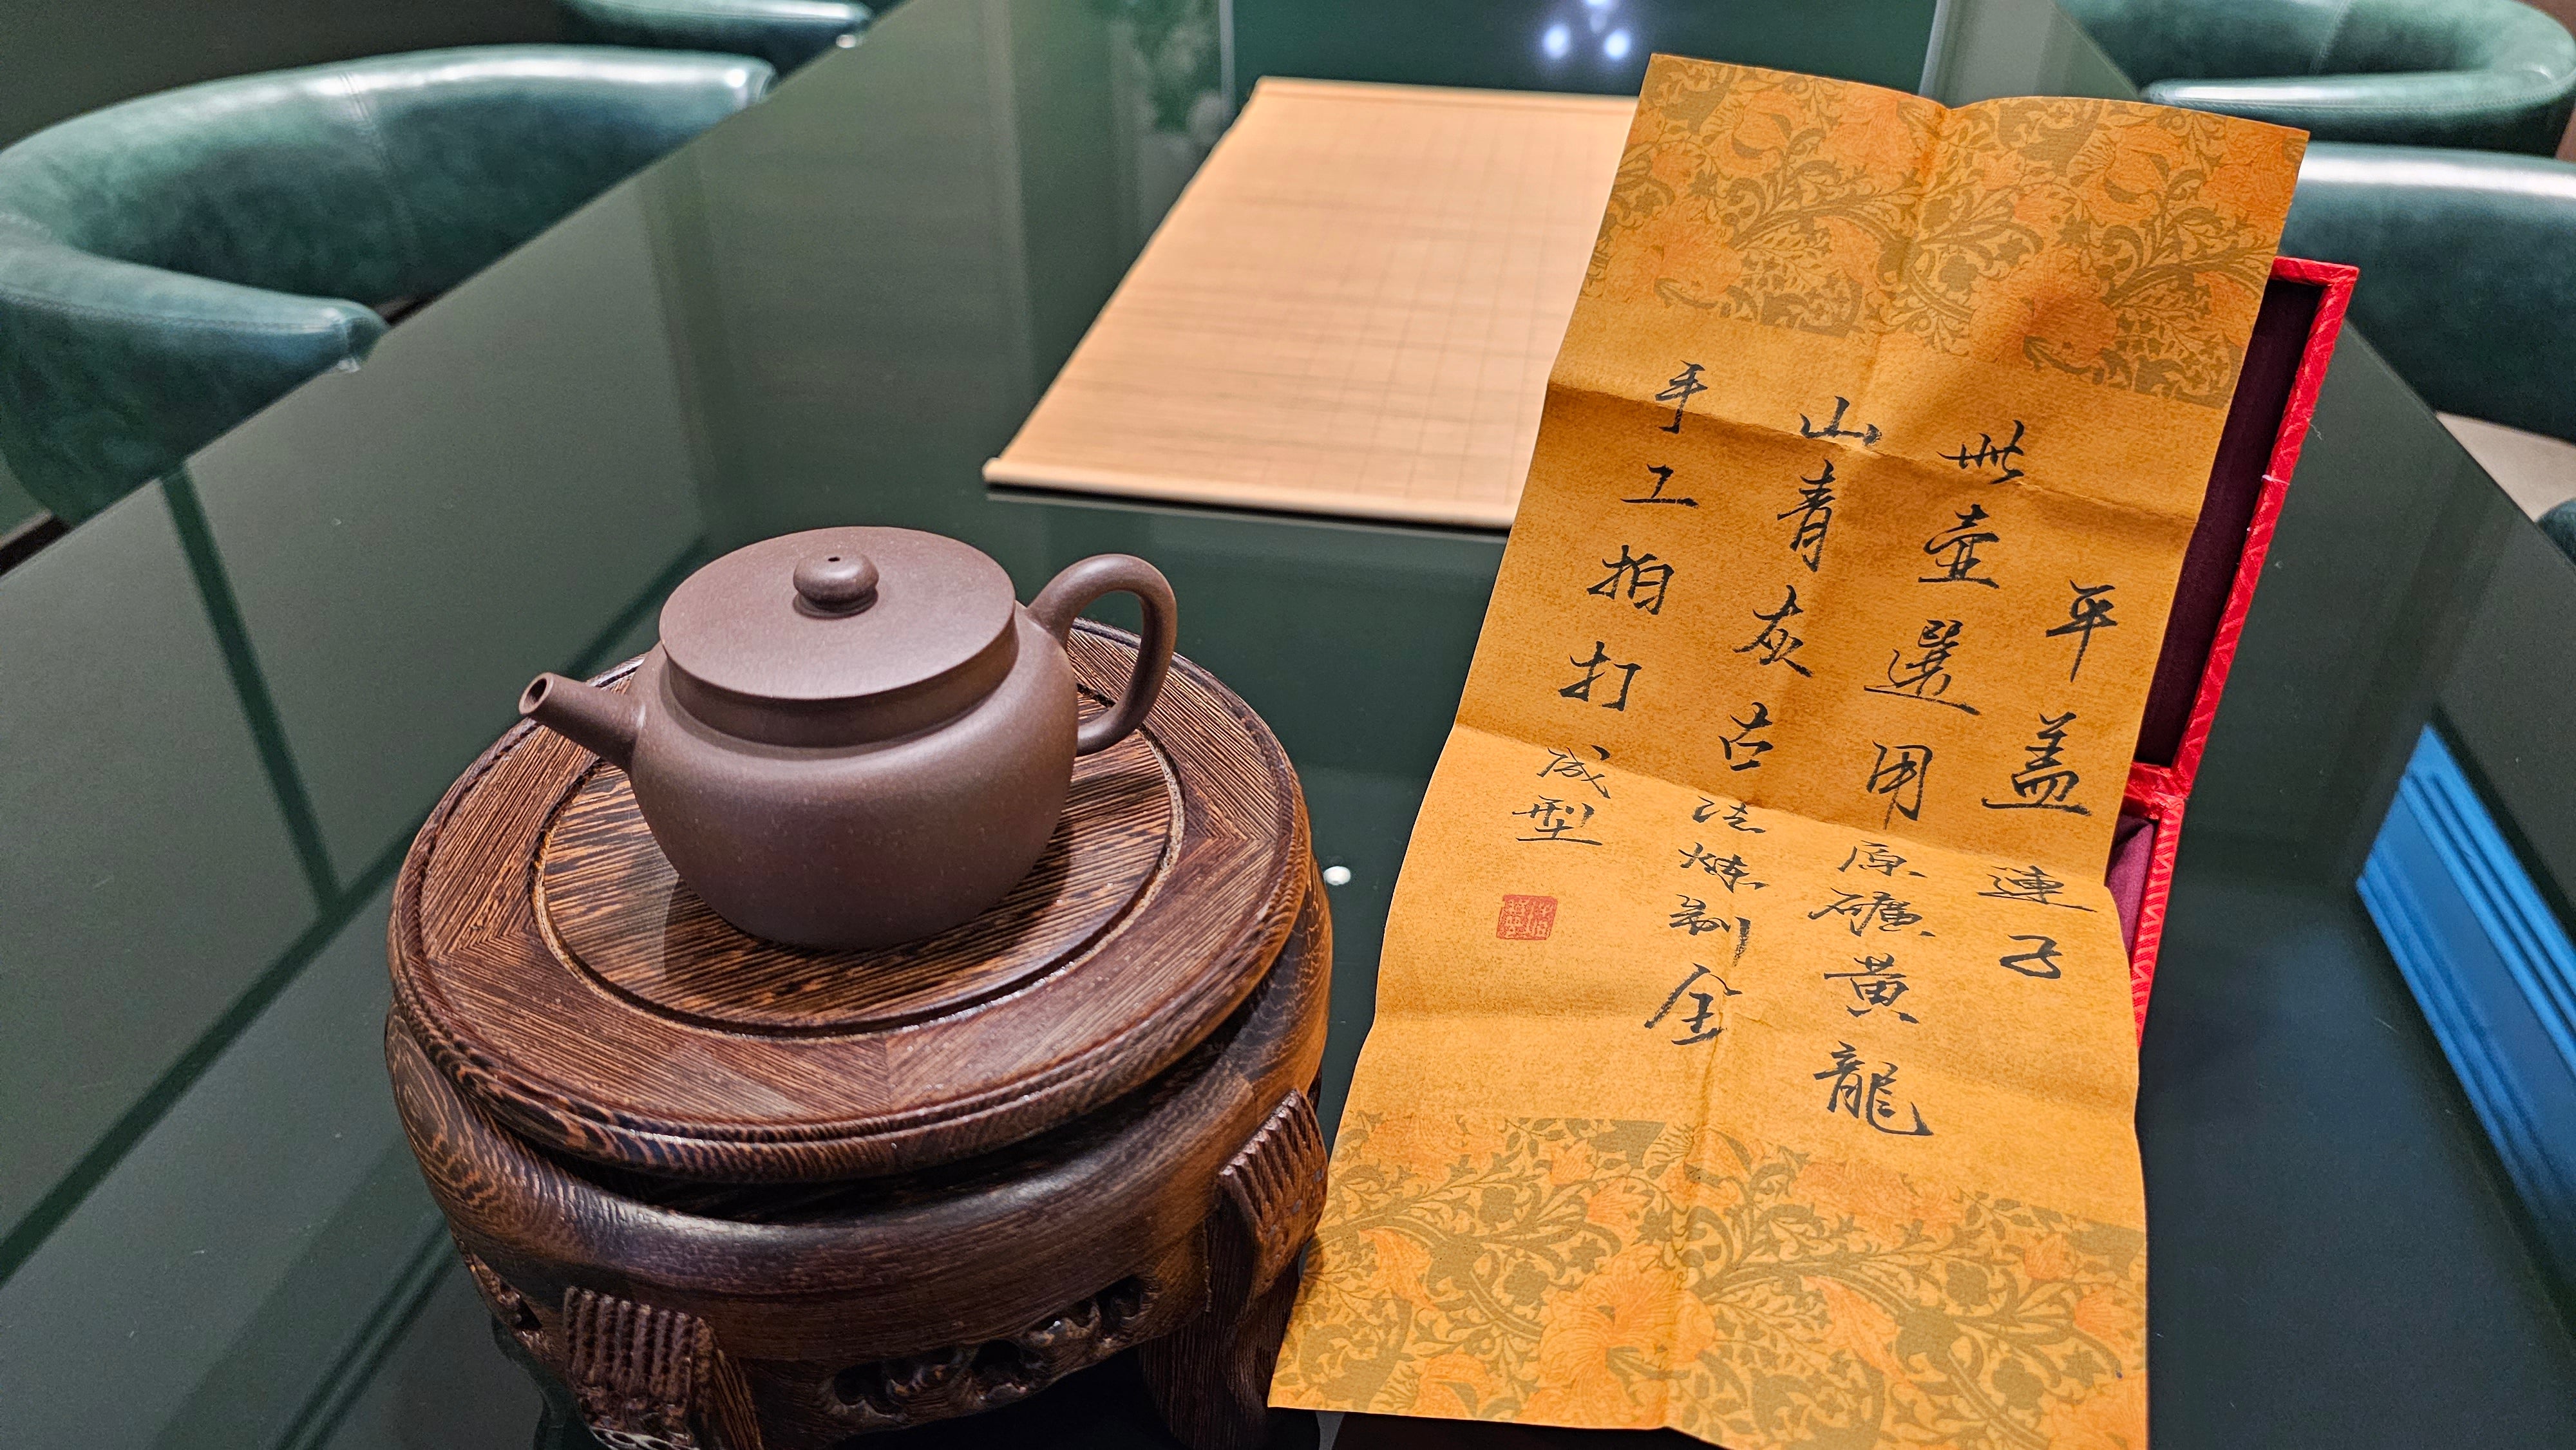 平盖蓮子
此壺選用原礦黄龍
山青灰古法煉制全
手工拍打成型